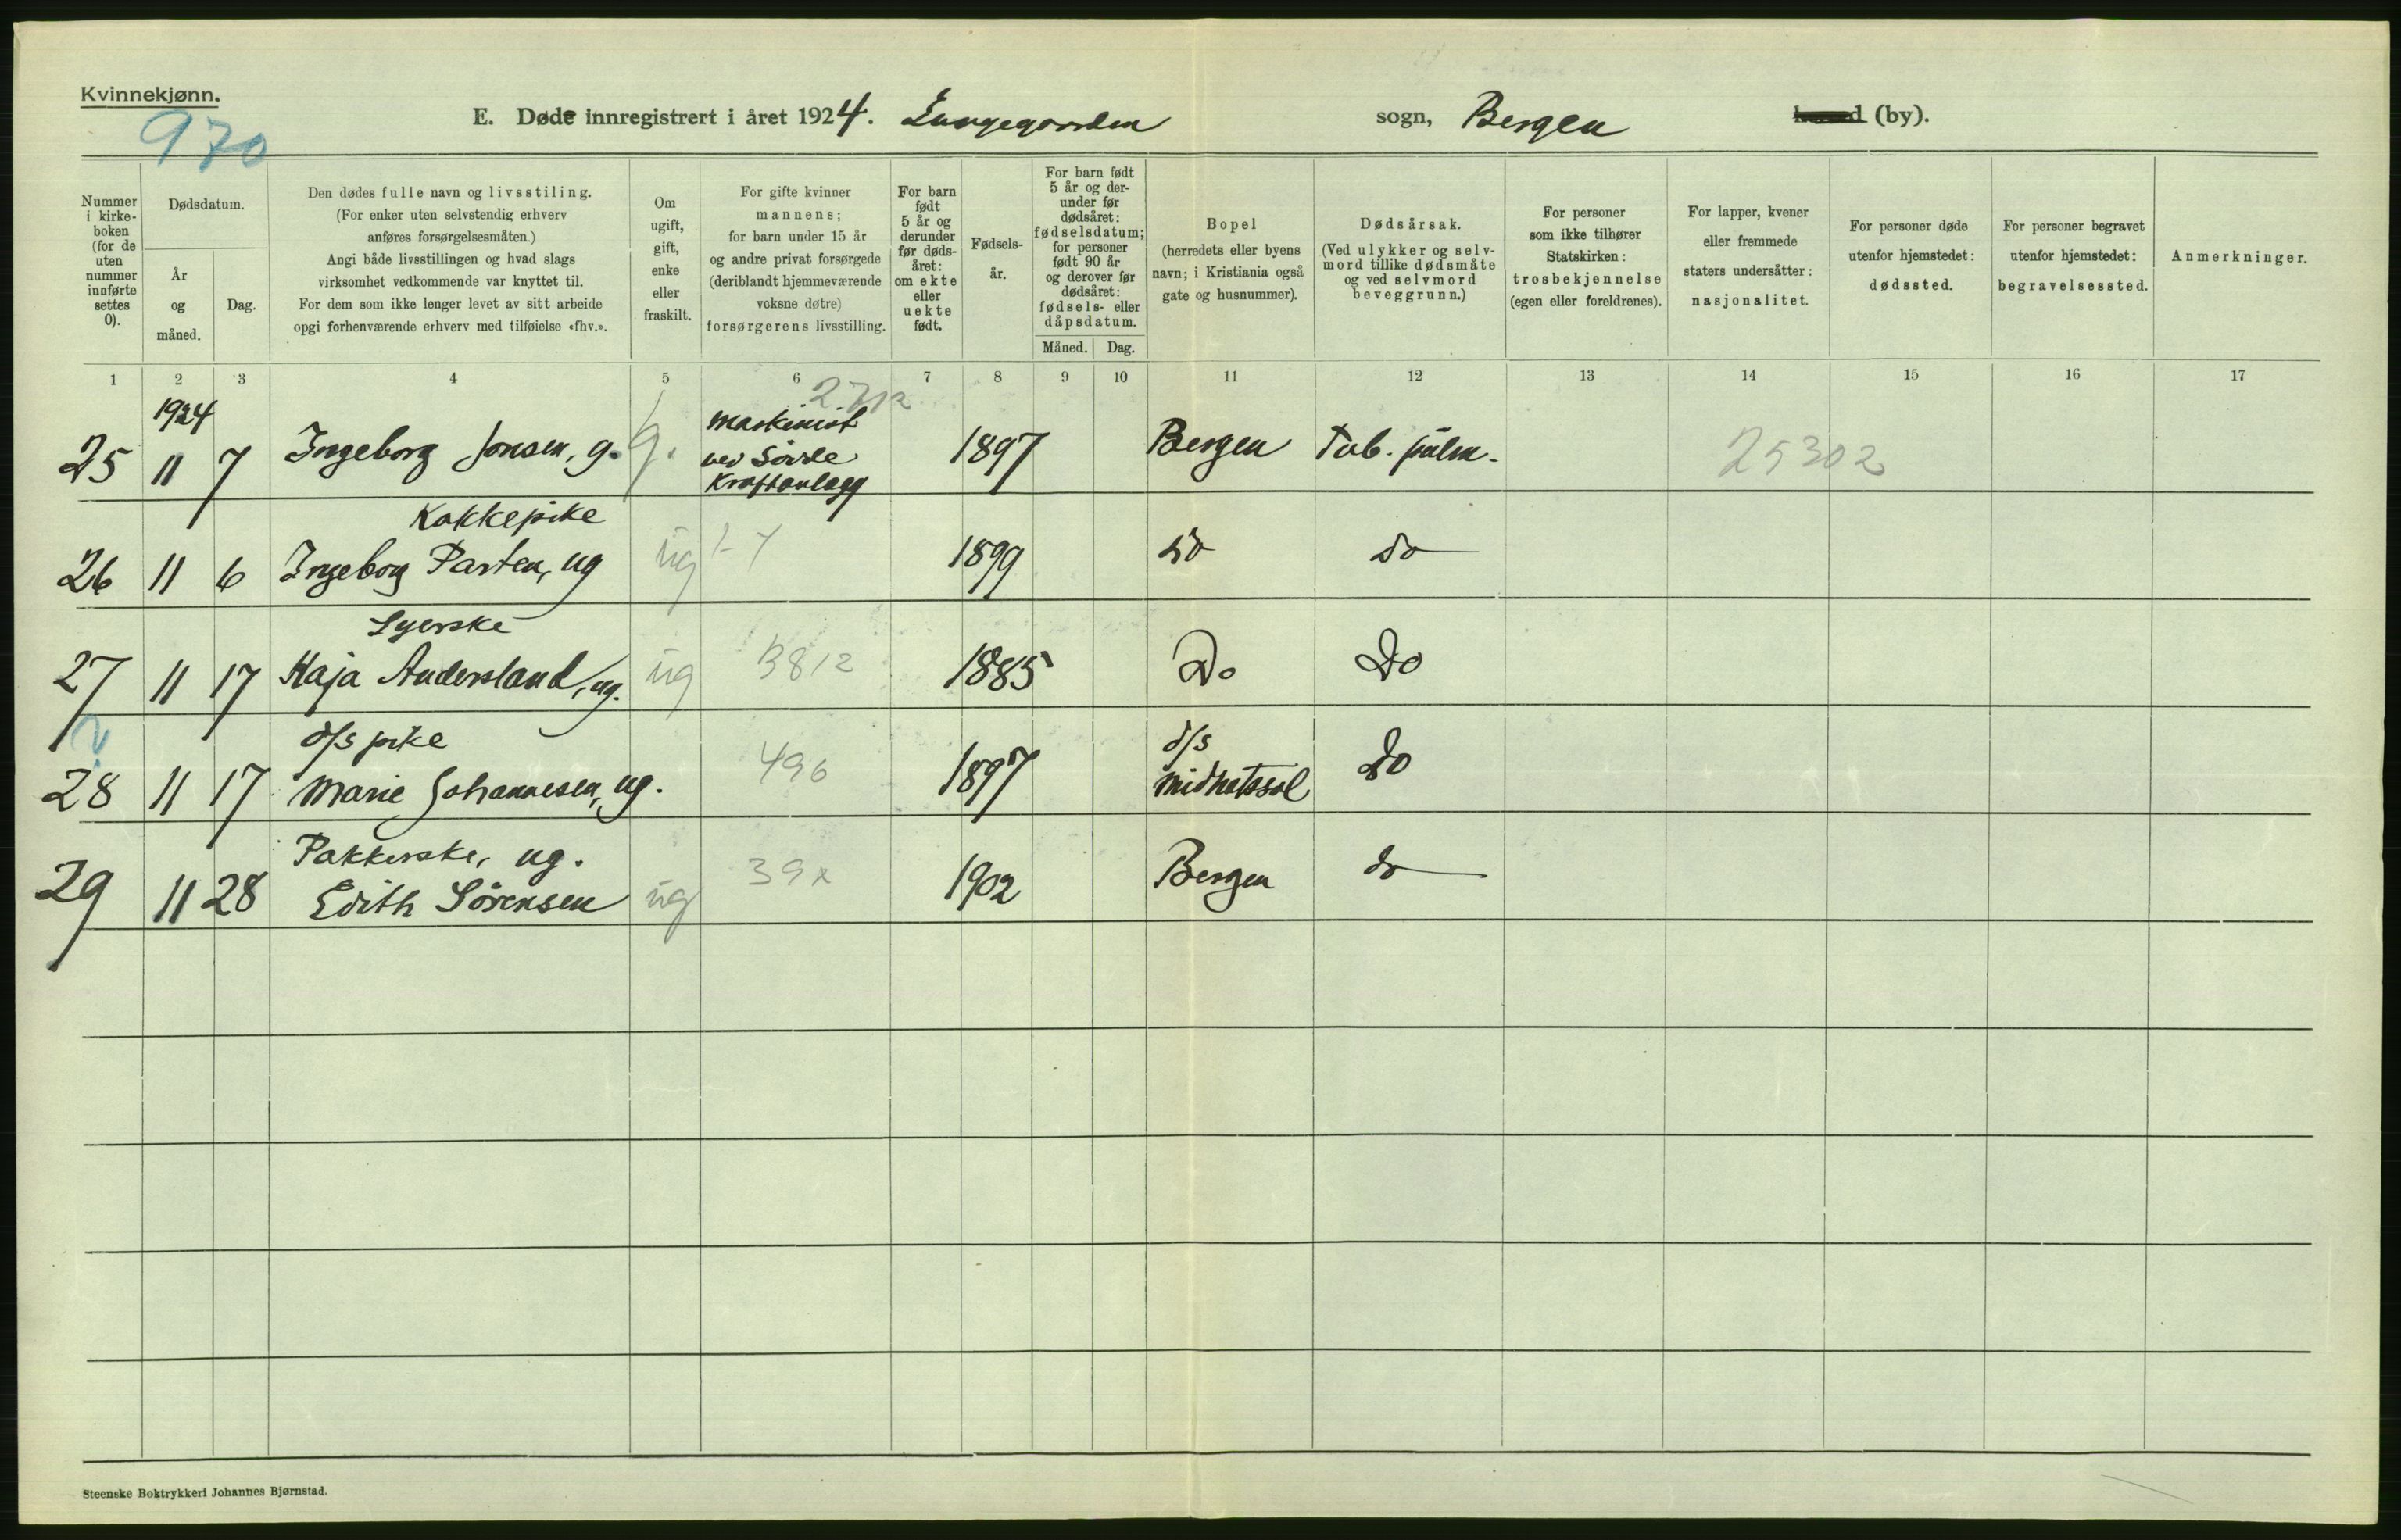 Kvinnekjønn.
970
E. Døde innregistrert i året 1924. Lungegaarden sogn, Bergen herred (by).
Nummer i kirke-boken (for de uten nummer innførte settes 0).
Dødsdatum.
År og måned.
Dag.
Den dødes fulle navn og livsstiling.
(For enker uten selvstendig erhverv
anføres forsørgelsesmåten.)
Angi både livsstillingen og hvad slags
virksomhet vedkommende var knyttet til.
For dem som ikke lenger levet av sitt arbeide
opgi forhenværende erhverv med tilføielse «fhv.».
Om ugift, gift, enke eller fraskilt.
For gifte kvinner
mannens;
for barn under 15 år
og andre privat forsørgede
(deriblandt hjemmeværende
voksne døtre)
forsørgerens livsstilling.
For barn født 5 år og derunder før døds-året: om ekte eller uekte født.
Fødsels-år.
For barn født
5 år og der-
under før
dødsåret:
fødselsdatum;
for personer
født 90 år
og derover før
dødsåret:
fødsels- eller
dåpsdatum.
Måned. Dag.
Bopel
(herredets eller byens
navn; i Kristiania også
gate og husnummer).
Dødsårsak.
(Ved ulykker og selv-
mord tillike dødsmåte
og ved selvmord
beveggrunn.)
For personer
som ikke tilhører
Statskirken:
trosbekjennelse
(egen eller foreldrenes).
For lapper, kvener
eller fremmede
staters undersåtter:
nasjonalitet.
For personer døde
utenfor hjemstedet:
dødssted.
For personer begravet
utenfor hjemstedet:
begravelsessted.
Anmerkninger.
1 2 3 4 5 6 7 8 9 10 11 12 13 14 15 16 17
1924
25 11 7 Ingeborg Jonsen, g. g. maskinist ved Kraftanlagg 1897 Bergen Tub. pulm. 25302
Kokkepike
26 11 6 Ingeborg ug ug 1899 do do
Syerske
27 11 17 Kaja Andersland, ug. ug 3812 1885 Do Do
d/s pike
28 11 17 Marie Johannesen, ug. 496 1897 d/s Midnatssol do
Pakkerske, ug.
29 11 28 Edith Sörensen ug 39x 1902 Bergen do
Steenske Boktrykkeri Johannes Bjørnstad.